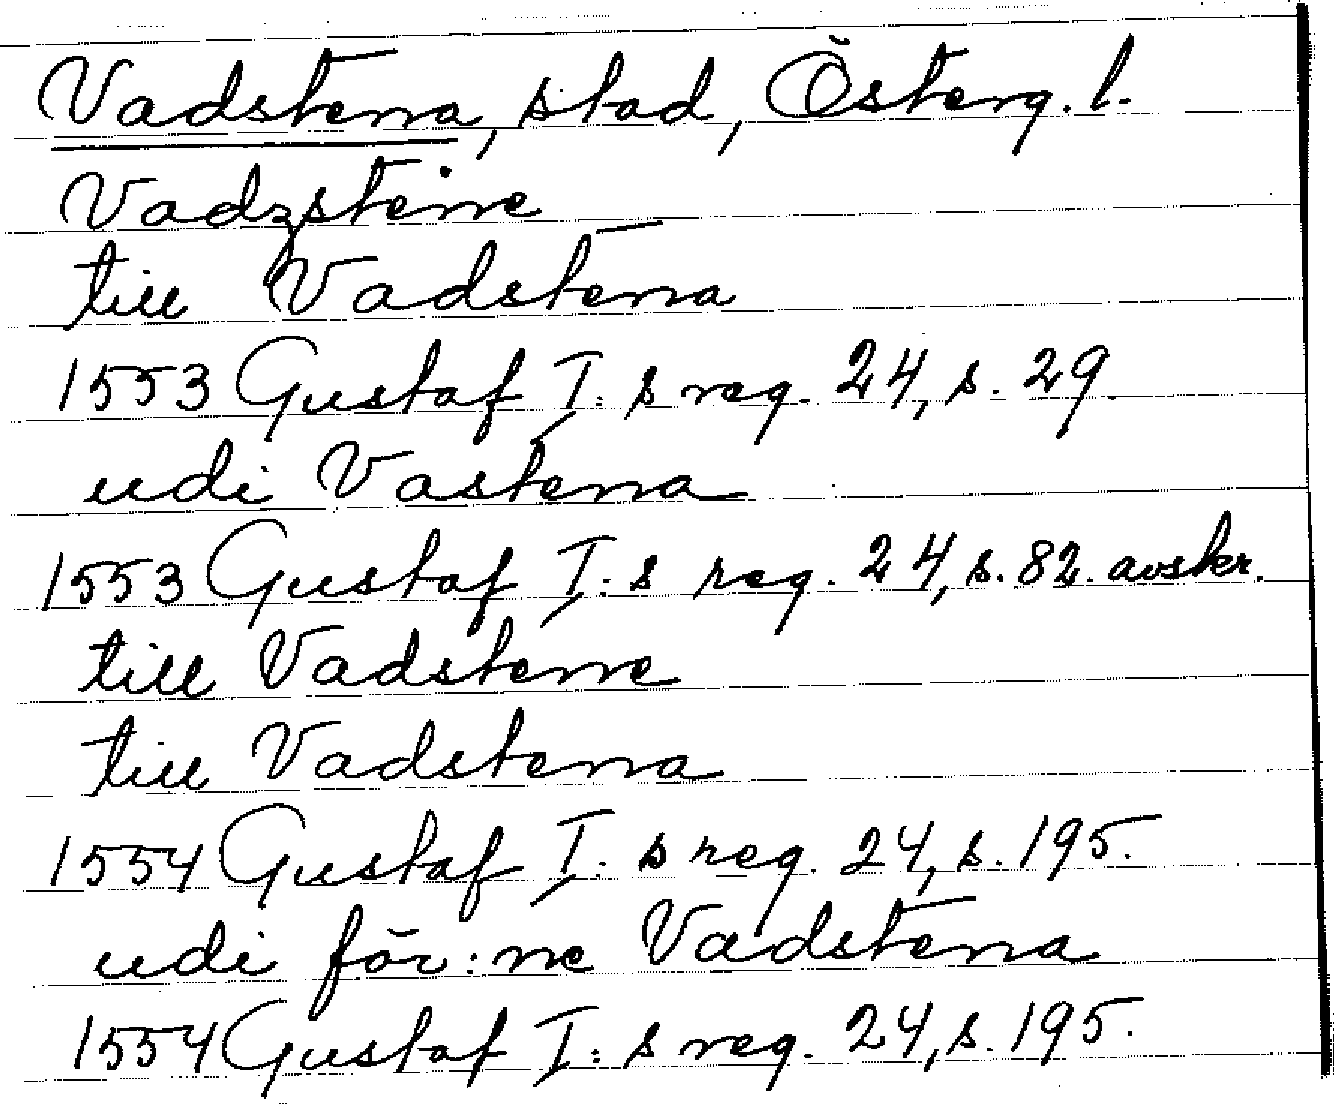 Vadstena, stad, Österg. l.
Vadzstene
till Vadstena
1553 Gustaf I:s reg. 24, s. 29
udi Vastena
1553 Gustaf I:s reg. 24, s. 82. avskr.
till Vadstene
till Vadstena
1554 Gustaf I:s reg. 24, s. 195.
udi för:ne Vadstena
1554 Gustaf I:s reg. 24, s. 195.